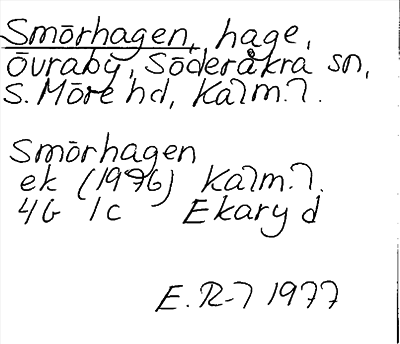 Smörhagen, hage,
Övraby, Söderåkra sn,
S. Möre hd, Kalm. l.
Smörhagen
ek (1976) Kalm. l.
4G 1c Ekaryd
E. R-l 1977